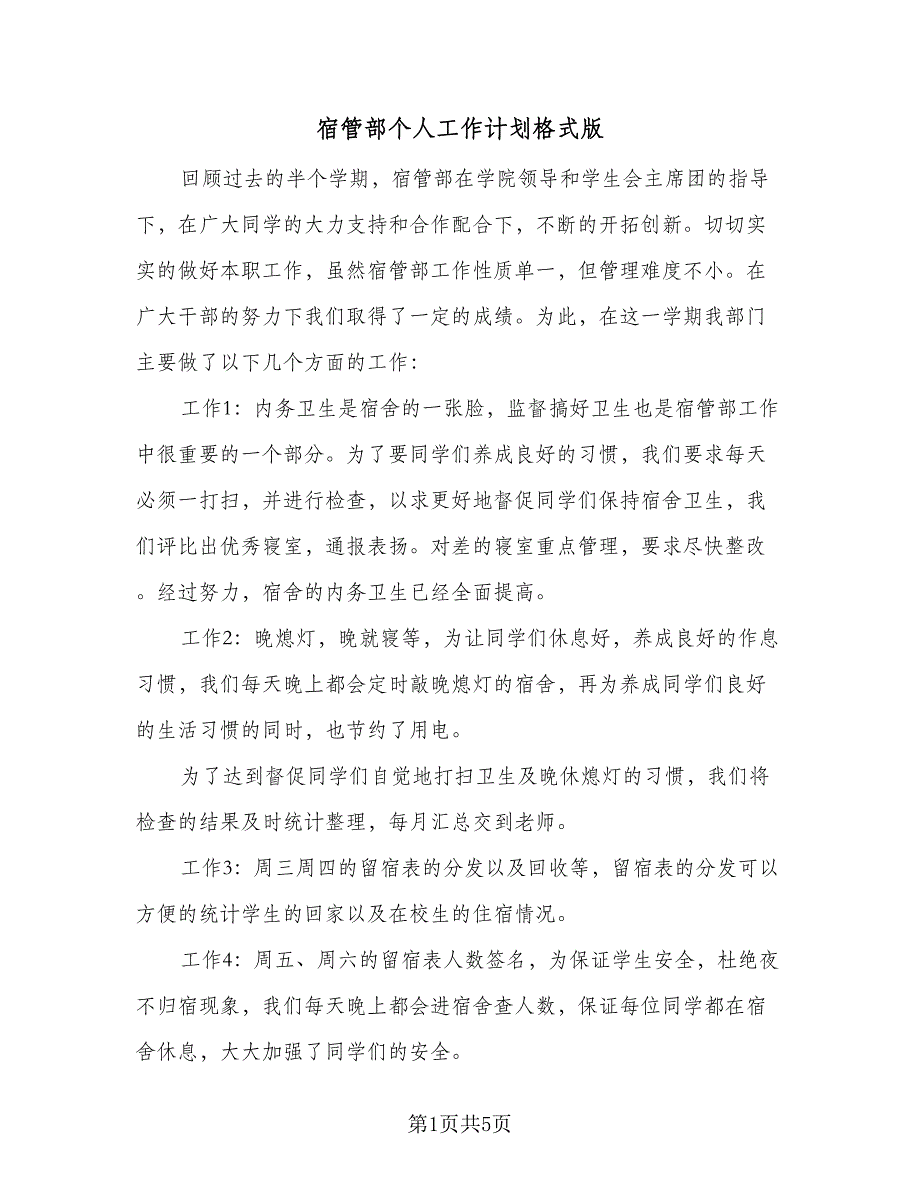 宿管部个人工作计划格式版
回顾过去的半个学期，宿管部在学院领导和学生会主席团的指导
下，在广大同学的大力支持和合作配合下，不断的开拓创新。切切实
实的做好本职工作，虽然宿管部工作性质单一，但管理难度不小。在
广大干部的努力下我们取得了一定的成绩。为此，在这一学期我部门
主要做了以下几个方面的工作：
工作1：内务卫生是宿舍的一张脸，监督搞好卫生也是宿管部工作
中很重要的一个部分。为了要同学们养成良好的习惯，我们要求每天
必须一打扫，并进行检查，以求更好地督促同学们保持宿舍卫生，我
们评比出优秀寝室，通报表扬。对差的寝室重点管理，要求尽快整改
。经过努力，宿舍的内务卫生已经全面提高。
工作2：晚熄灯，晚就寝等，为让同学们休息好，养成良好的作息
习惯，我们每天晚上都会定时敲晚熄灯的宿舍，再为养成同学们良好
的生活习惯的同时，也节约了用电。
为了达到督促同学们自觉地打扫卫生及晚休熄灯的习惯，我们将
检查的结果及时统计整理，每月汇总交到老师。
工作3：周三周四的留宿表的分发以及回收等，留宿表的分发可以
方便的统计学生的回家以及在校生的住宿情况。
工作4：周五、周六的留宿表人数签名，为保证学生安全，杜绝夜
不归宿现象，我们每天晚上都会进宿舍查人数，保证每位同学都在宿
舍休息，大大加强了同学们的安全。
第1页共5页